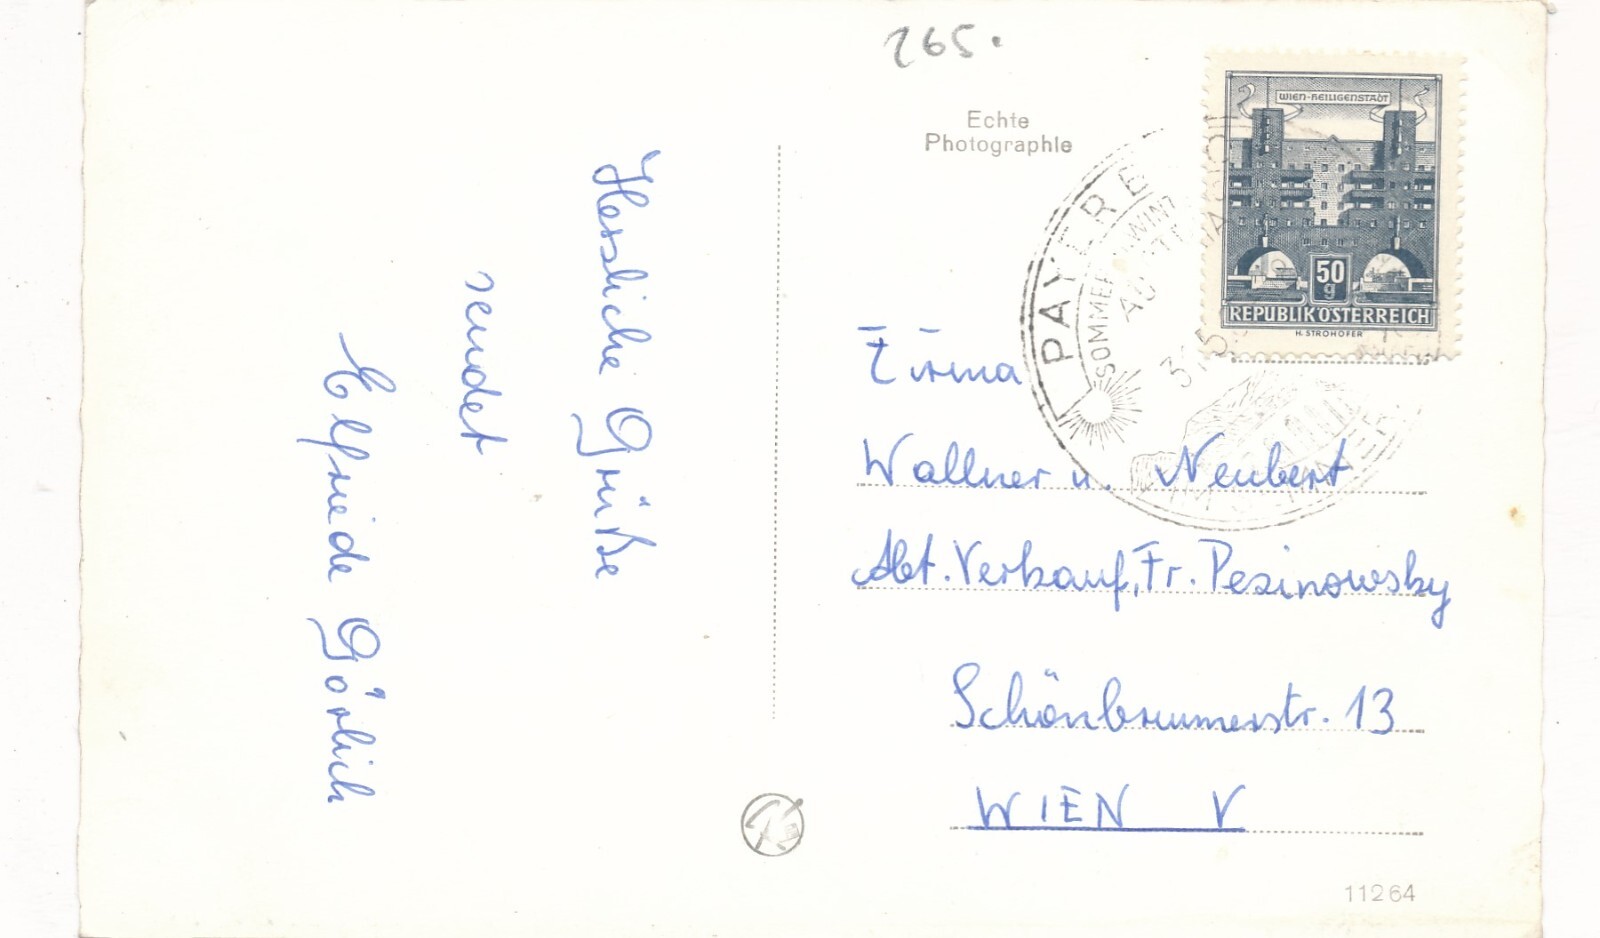 265.
Echte
Photographie
WIEN-HEILIGENSTADT
50
g
REPUBLIK ÖSTERREICH
H. STROHOFER
PAYER
SOMMER
Herzliche Grüße
sendet
Elfriede Görlich
Firma
Wallner u. Neubert
Abt. Verkauf, Fr. Pesinowsky
Schönbrunnerstr. 13
WIEN V
11264